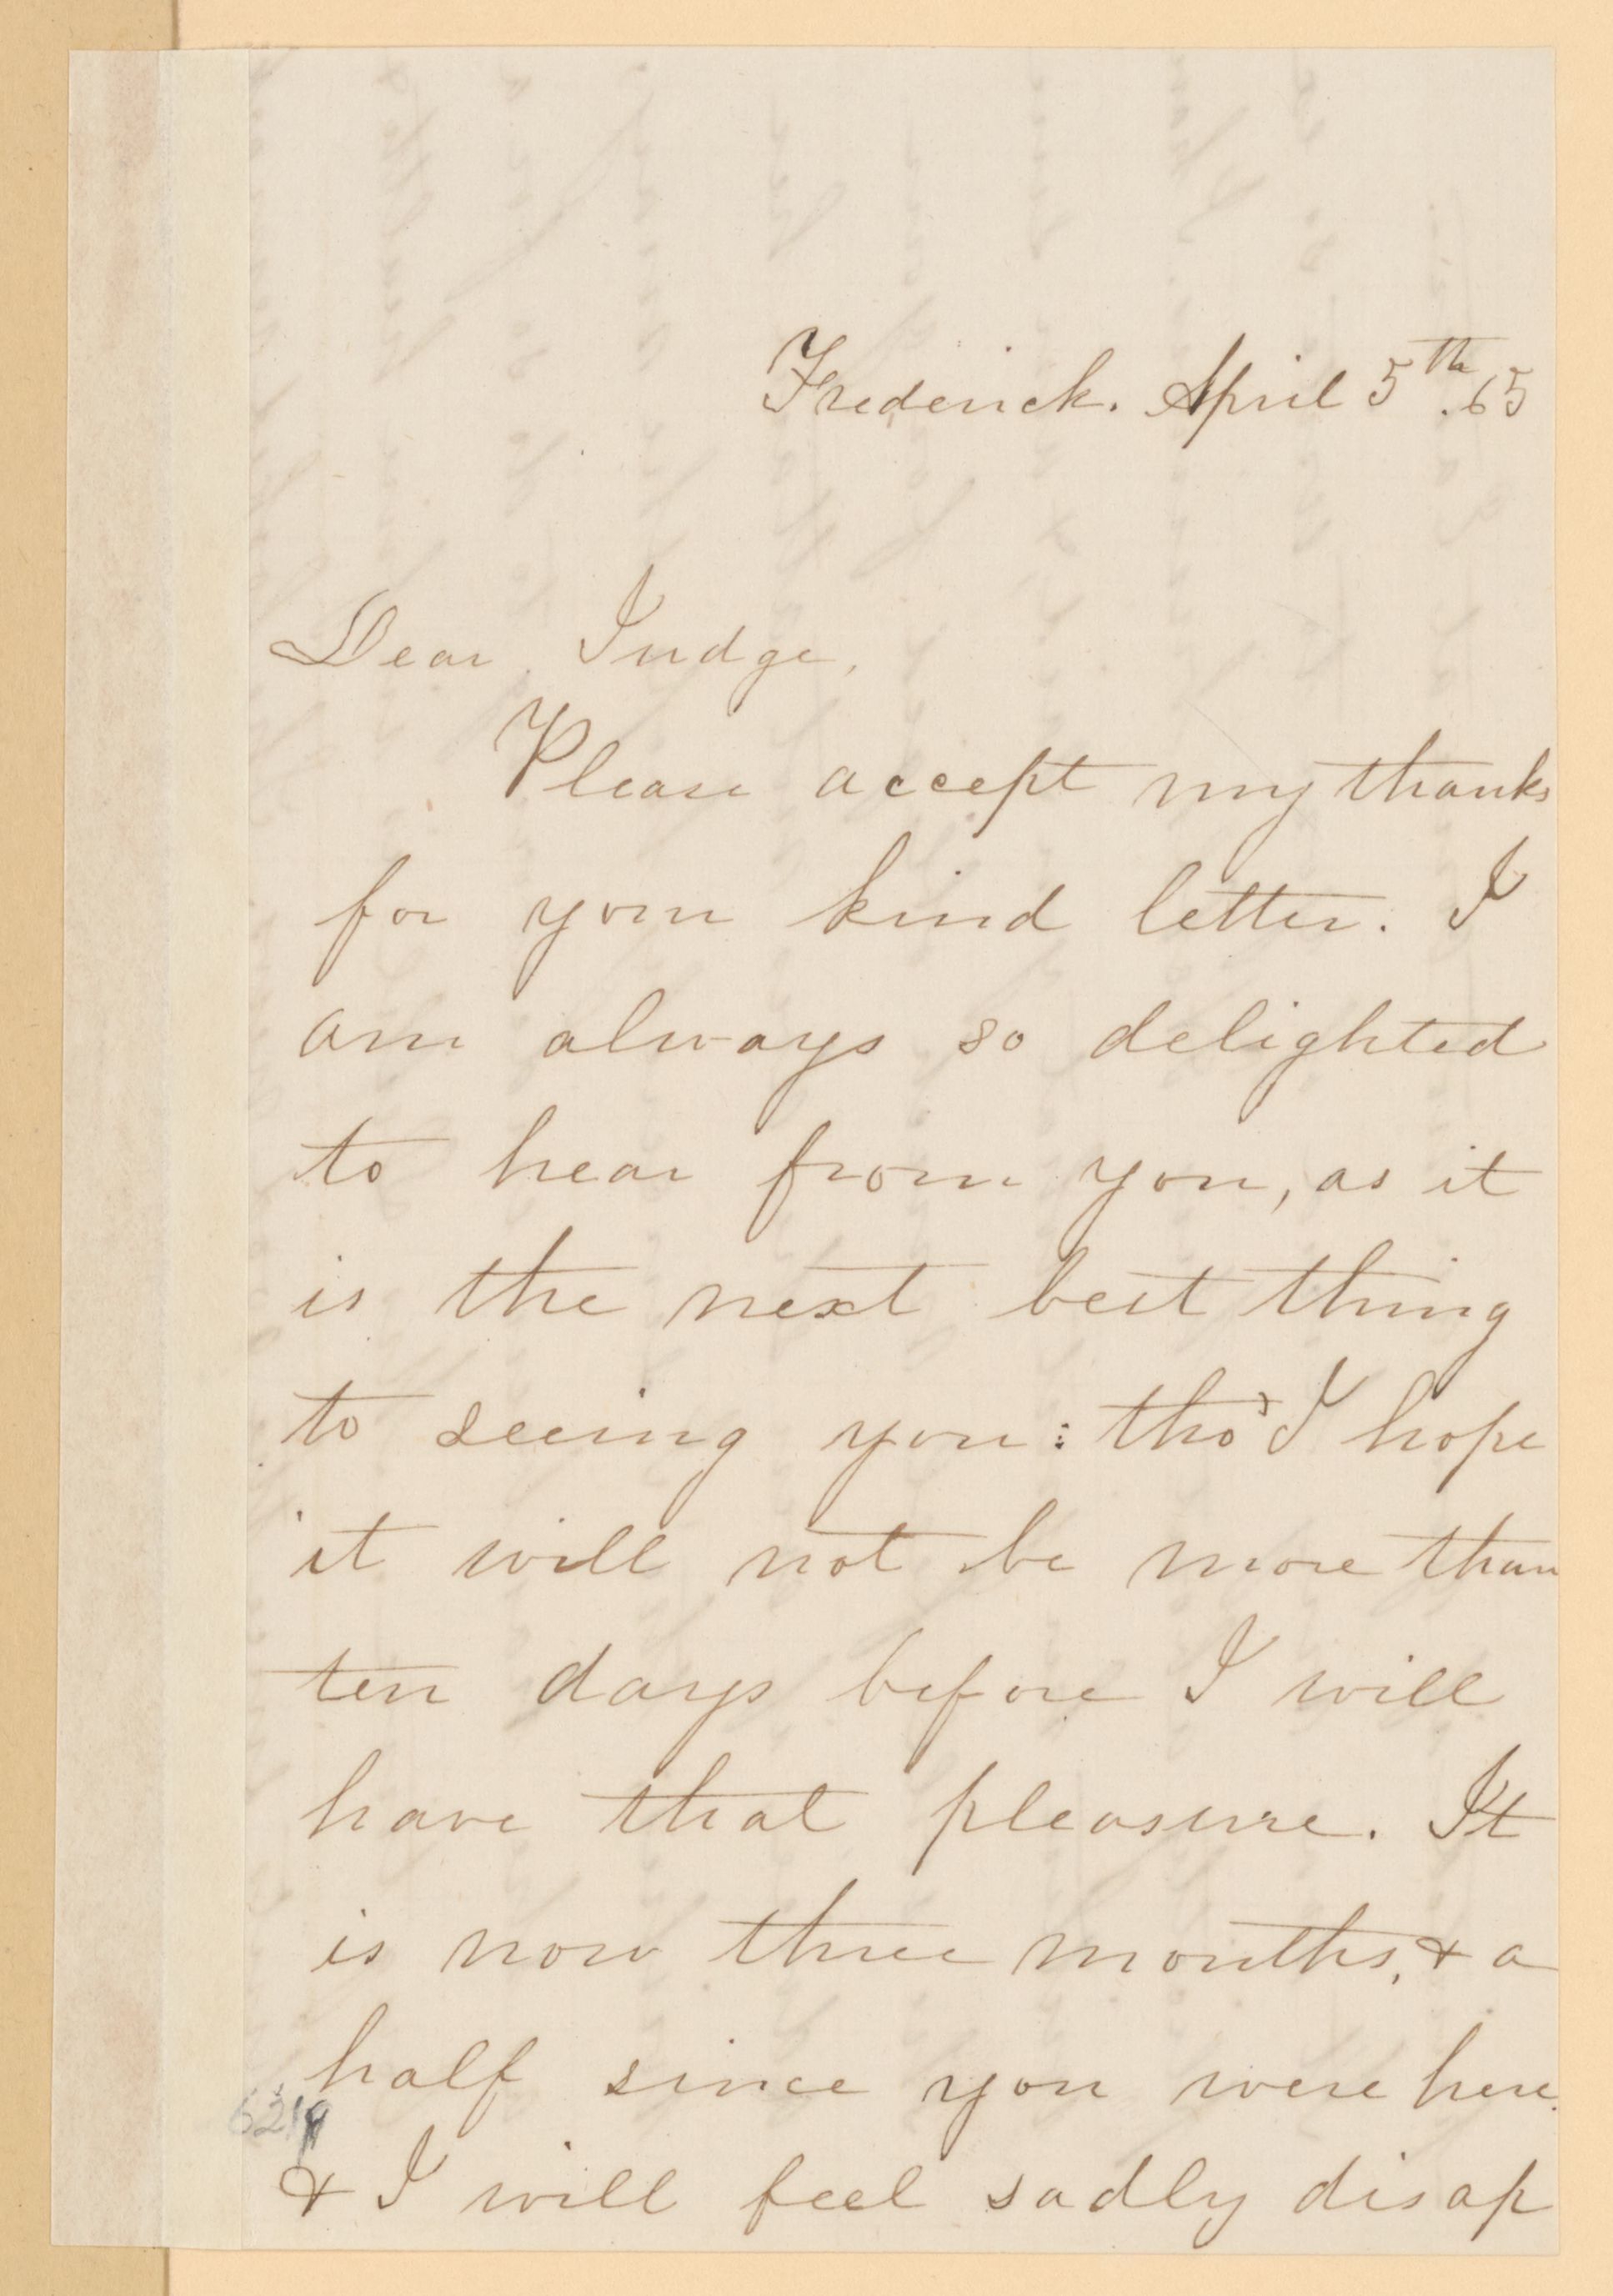 Frederick. April 5th .65
Dear Judge,
Please accept my thanks
for your kind letter. I
am always so delighted
to hear from you, as it
is the next best thing
to seeing you: tho' I hope
it will not be more than
ten days before I will
have that pleasure. It
is now three months, & a
half since you were here.
& I will feel sadly disap